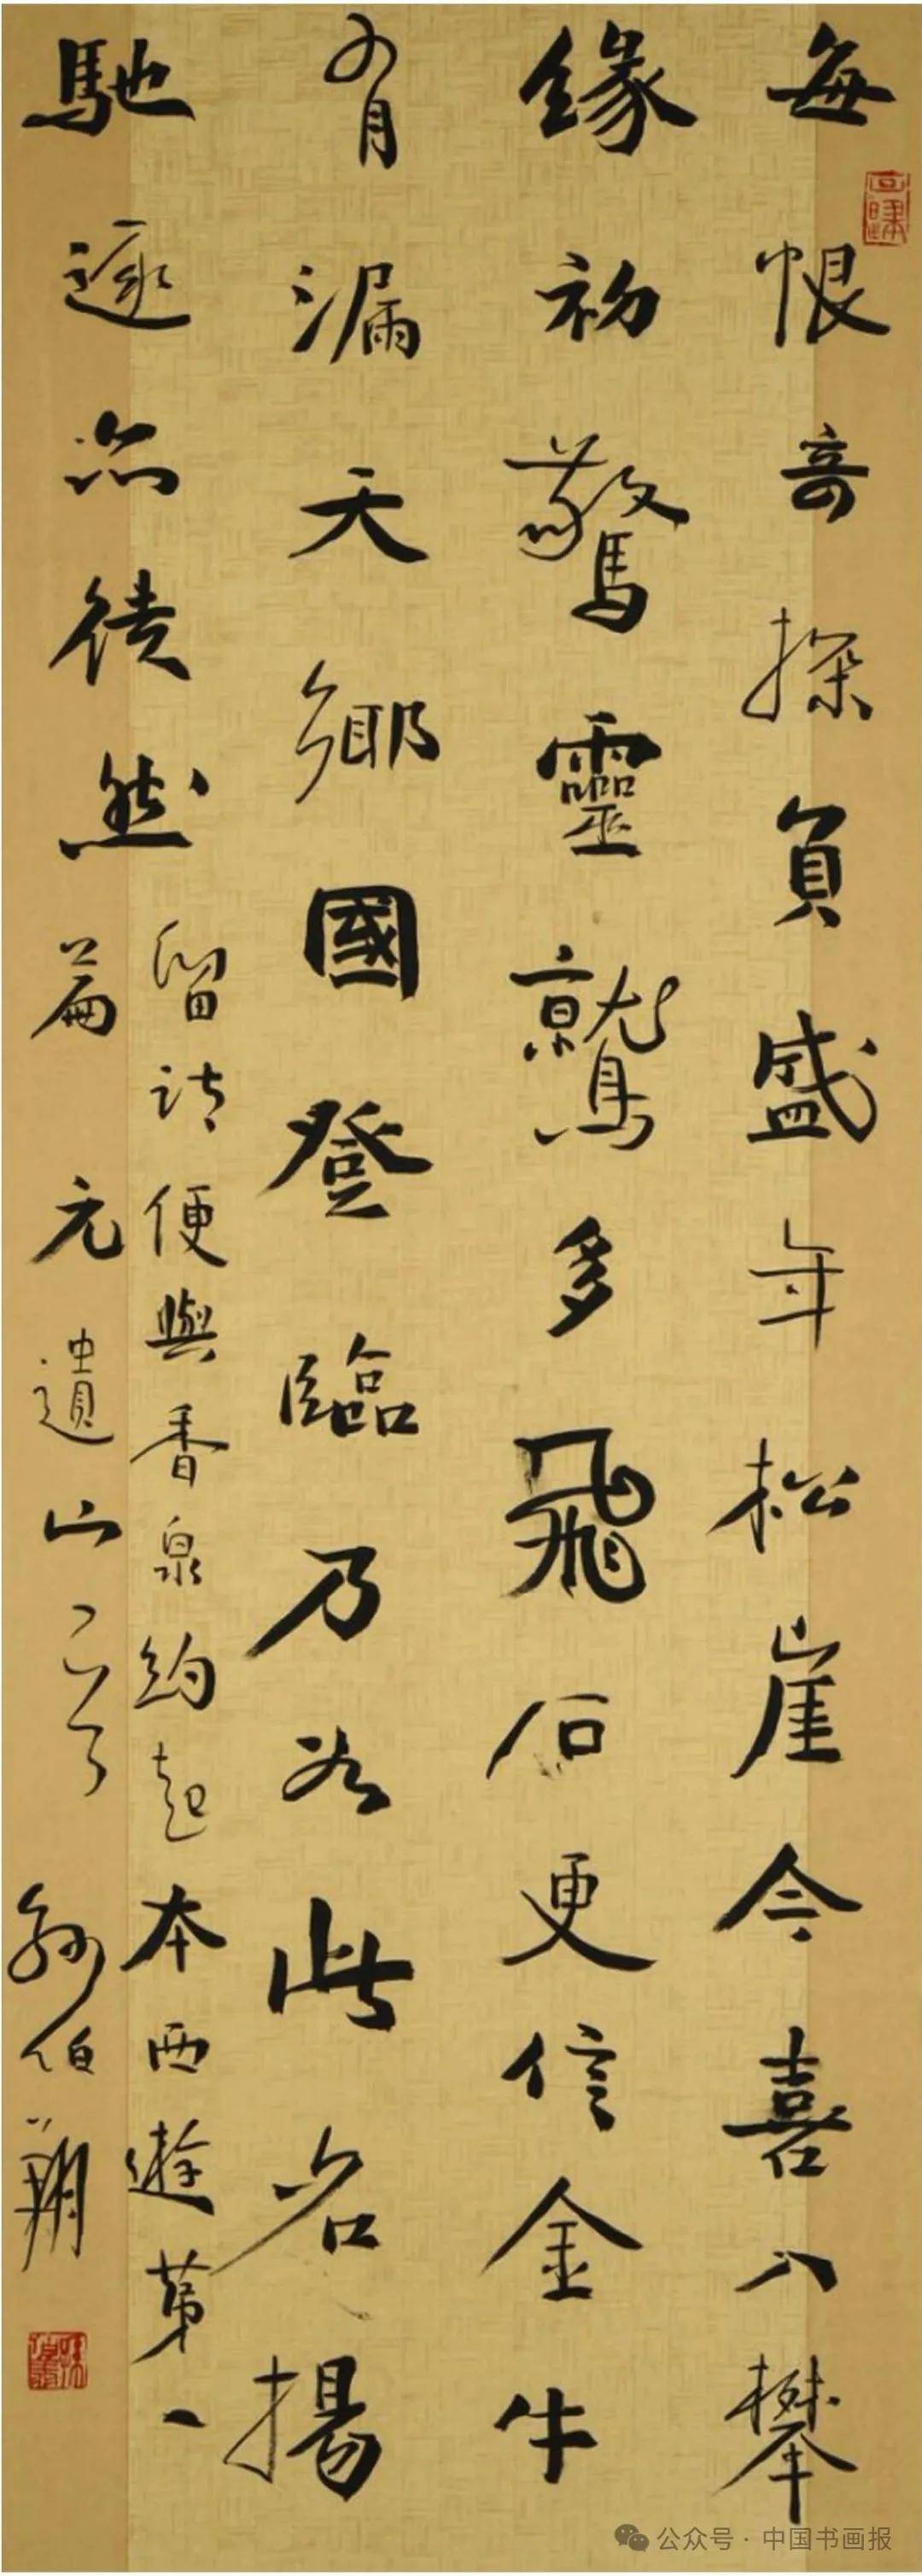 每恨奇探負盛年松崖今喜入攀
緣初驚靈鷲多飛石更信金牛
有漏天鄉國登臨乃如此名揚
馳逐亦徒然
留詩便與香泉約起本西遊第一
篇元遺山 孫伯翔
公众号 · 中国书画报